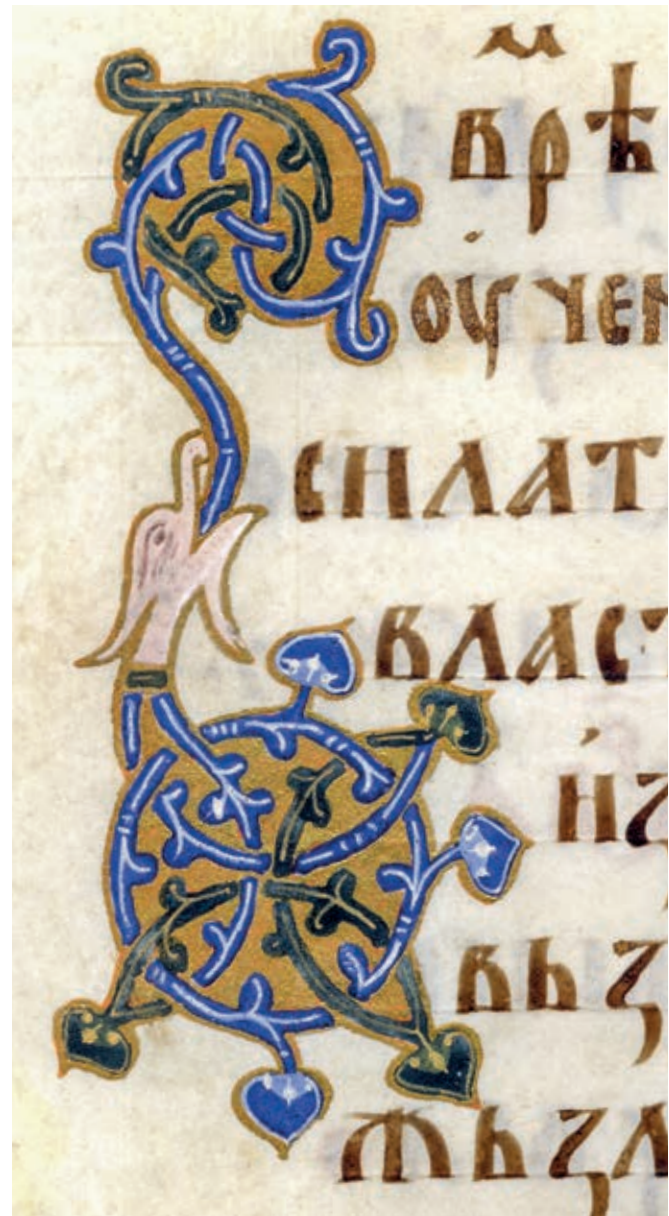 врѣⷨ
оучен
силат
власт
из
вьз
тьзл